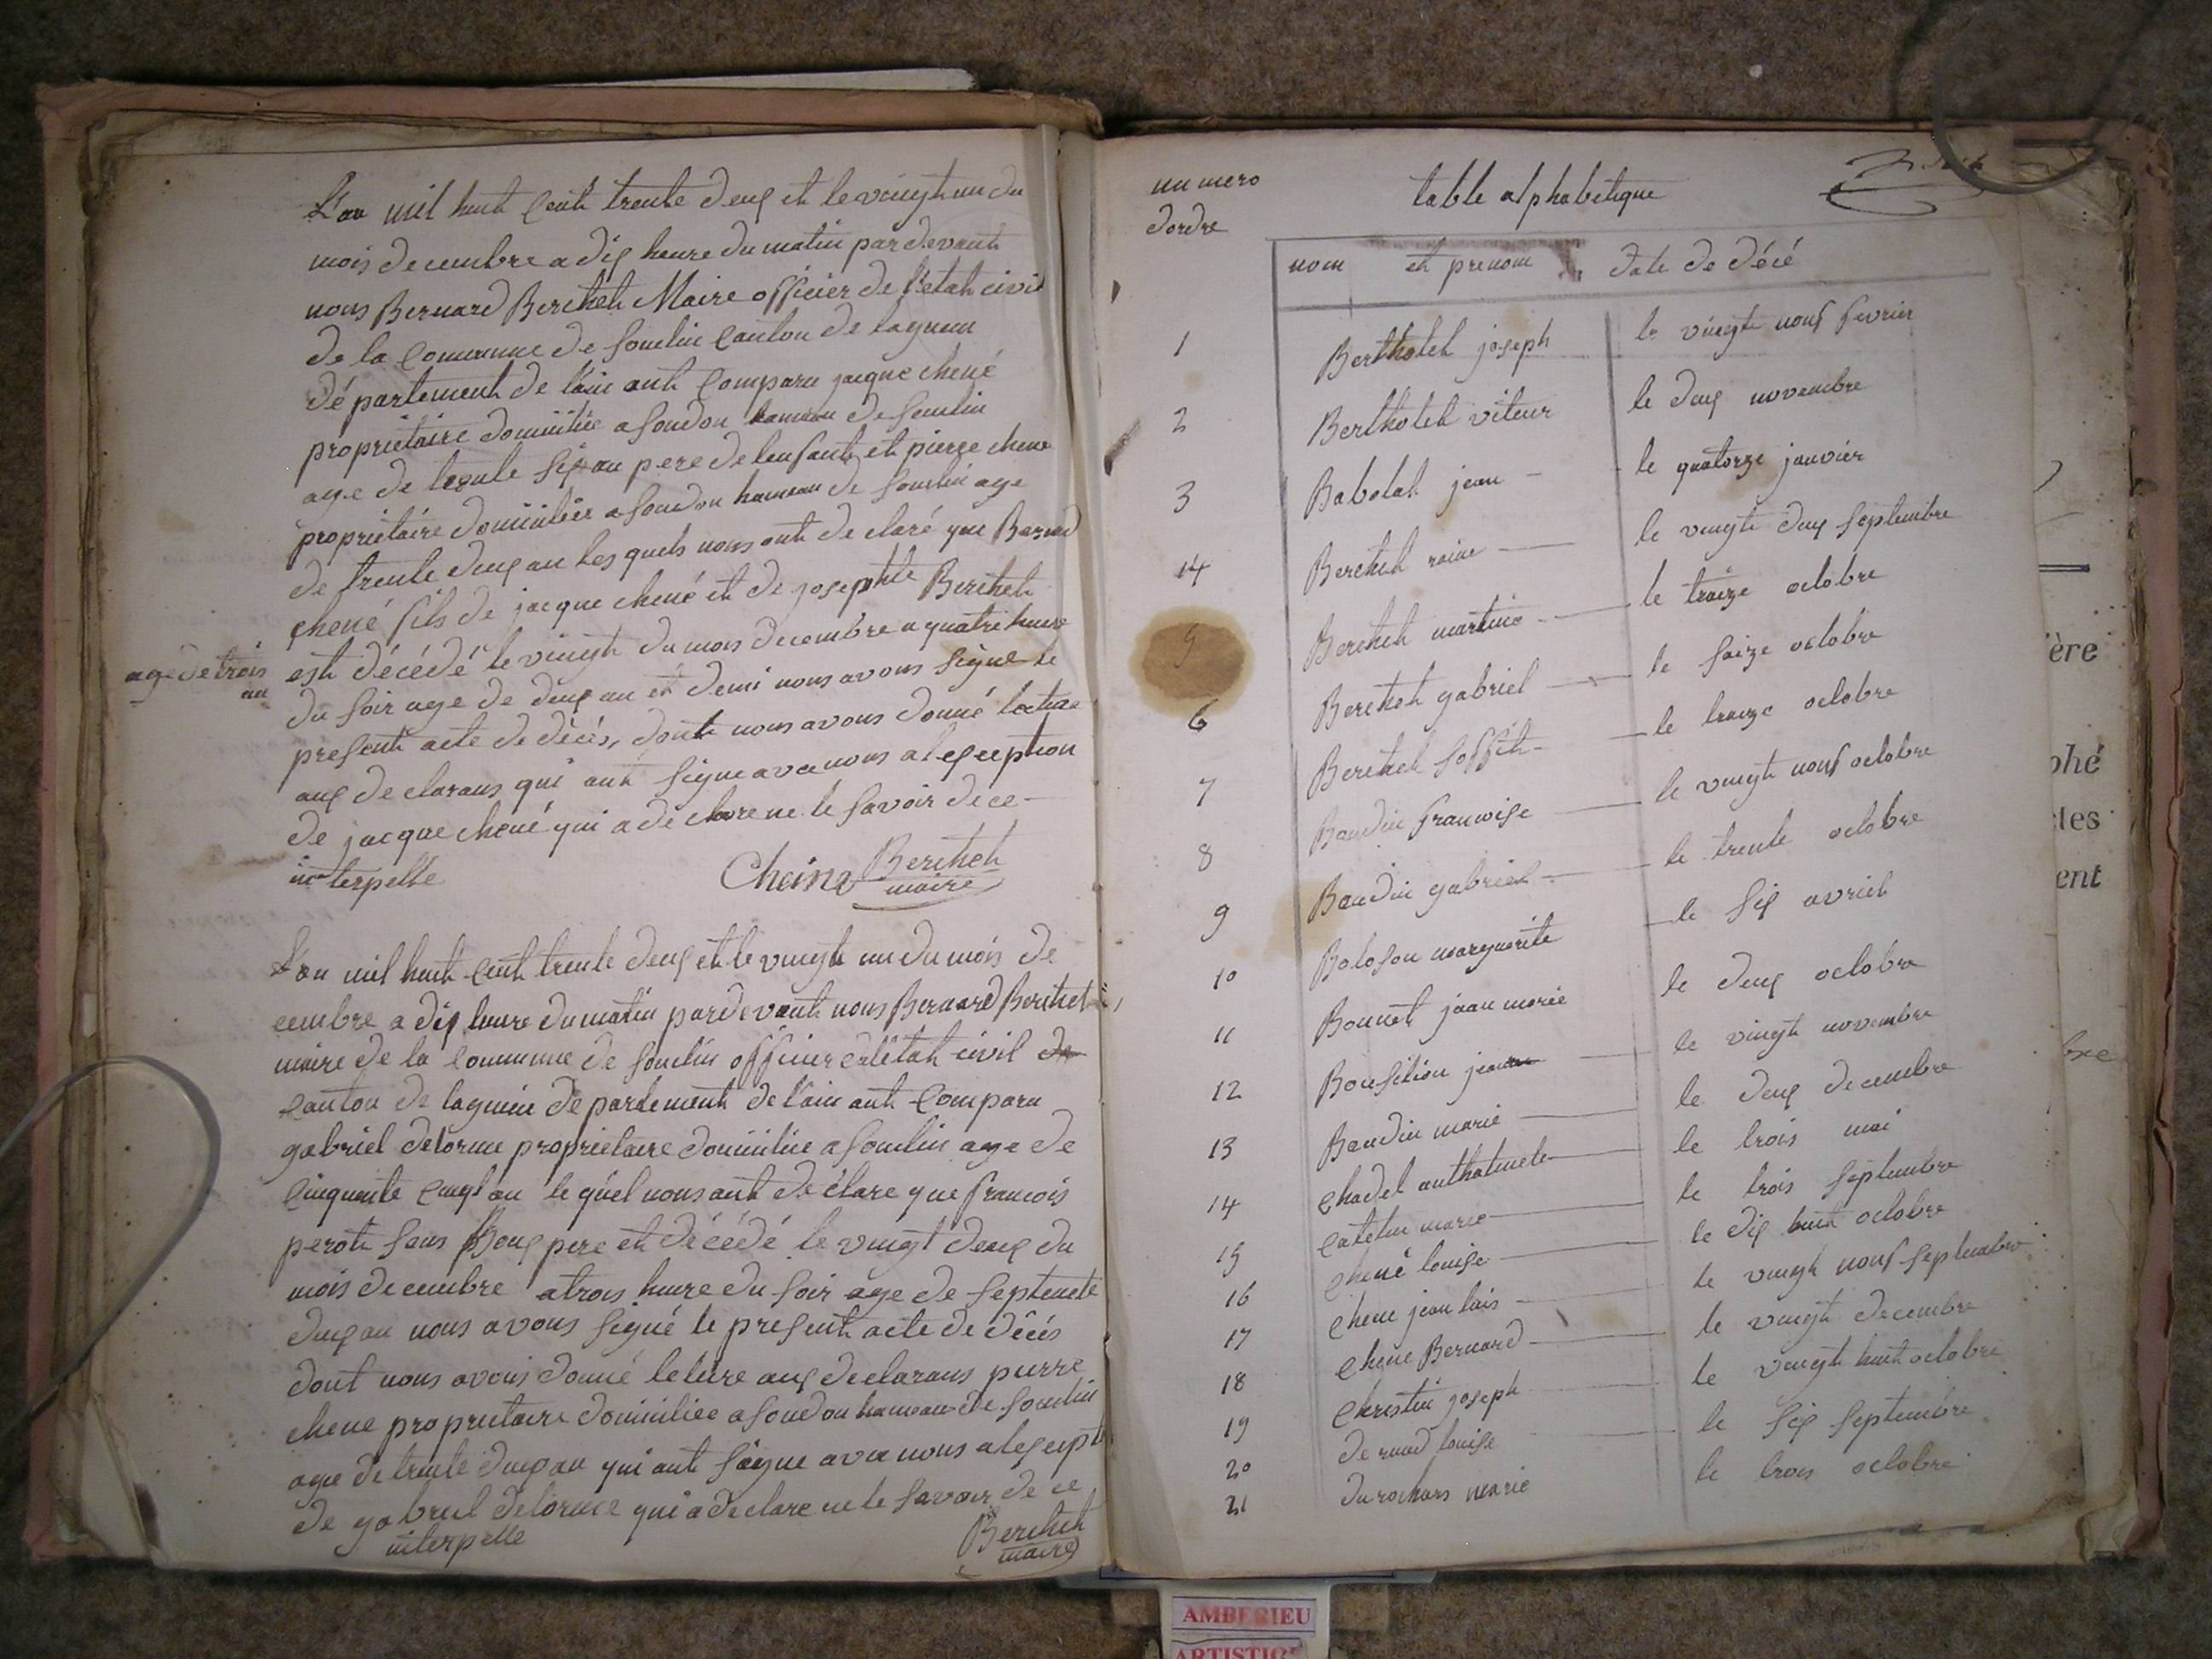 L'an mil huit cent trente deux et le vingt un du
mois decembre a dix heure du matin par devant
nous Bernard Berthet Maire officier de l'etat civil
de la Commune de Souclin Canton de lagnieu
département de l'ain ont Comparu jacque chené
proprietaire domicilié a soudon hameau de souclin
age de trente six an pere de lenfant et pierre chene
proprietaire domicilie a soudon hameau de souclin age
de trente deux an les quels nous ont declaré que Bernad
chené fils de jacque chené et de josephte Berthet
est décédé le vingt du mois decembre a quatre heure
age de trois
an
du soir age de deux an et demi nous avons signe le
present acte de décés, dont nous avons donné lecture
aux declarans qui ont signe avec nous a lexception
de jacque chené qui a declare ne le savoir de ce
interpellé
Chaina Berthet
maire
L'an mil huit cent trente deux et le vingt un du mois de
cembre a dix heure du matin par devant nous Bernard Berthet
maire de la Commune de souclin officier de l'état civil de
Canton de lagnieu departement de l'ain ont Comparu
gabriel delorme proprietaire domicilie a souclin age de
Cinquante Cinq an le quel nous ont déclare que francois
perot sons Boux pere et décédé le vingt deux du
mois decembre a trois heure du soir age de septente
deux an nous avons signé le present acte de décés
dont nous avons donné leture aux declarans pierre
chene proprietaire domicilie a soudon hameau de souclin
age de trente deux an qui ont signe avec nous a lexcept
de gabriel delorme qui a declare ne le savoir de ce
interpelle
Berthet
maire
numero
dordre
table alphabetique
nom et prenom date de décé
1 Berthotet joseph le vingt nouf fevrier
2 Berthotet viteur le deux novembre
3 Babolat jean le quatorze janvier
14 Berthet raine le vingt deux septembre
5 Berthet martine le traize octobre
6 Berthet gabriel le saize octobre
7 Berthet soffit le traize octobre
8 Baudin francoise le vingt nouf octobre
9 Baudin gabriel le trente octobre
10 Boloson marguerite le six avriel
11 Bonnet jean marie le deux octobre
12 Bousition jean le vingt novembre
13 Baudin marie le deux decembre
14 Chadel anthalmete le trois mai
15 Catelin marie le trois septembre
16 chené louise le dix huit octobre
17 chene jean lais le vingt nouf septembre
18 chene Bernard le vingt decembre
19 Christin joseph le vingt huit octobre
20 de ruad louise le six septembre
21 durochars marie le trois octobre
ère
phé
tes
ent
bre
AMBERIEU
ARTISTIQ